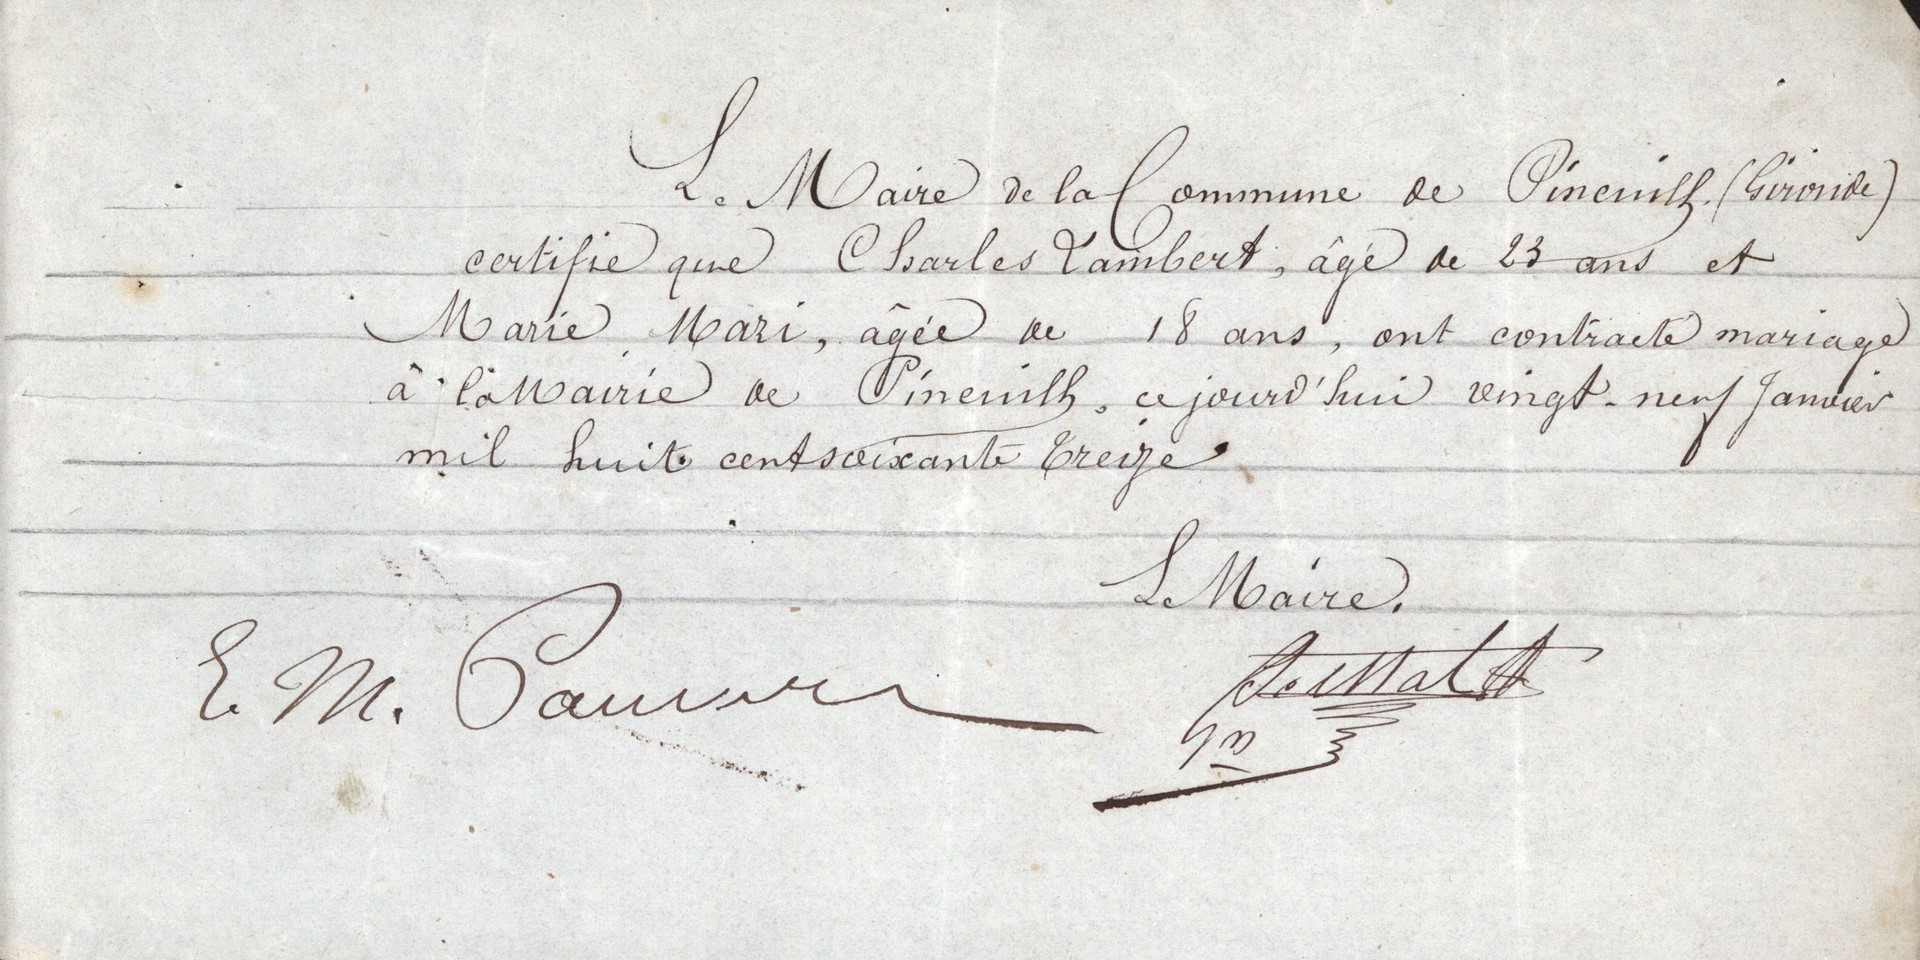 Le Maire de la Commune de Pineuilh. (Gironde)
certifie que Charles Lambert, âgé de 23 ans et
Marie Mari, âgée de 18 ans, ont contracté mariage
à la Mairie de Pineuilh, ce jourd'hui vingt-neuf Janvier
mil huit cent soixante treize.
Le Maire.
E. M.